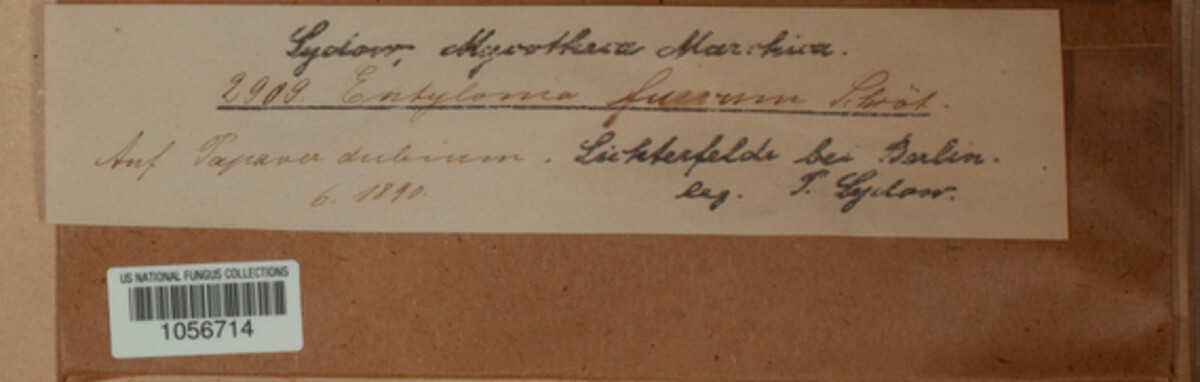 Sydow, Mycotheca Marchica.
2909 Entyloma fuscum Schröt.
Auf Papaver dubium. Lichterfelde bei Berlin.
6. 1890. leg. P. Sydow.
US NATIONAL FUNGUS COLLECTIONS
1056714